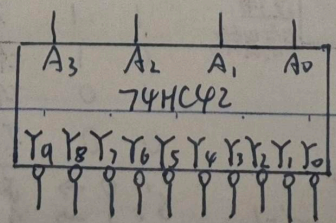 A3 A2 A1 A0
74HC42
Y9 Y8 Y7 Y6 Y5 Y4 Y3 Y2 Y1 Y0